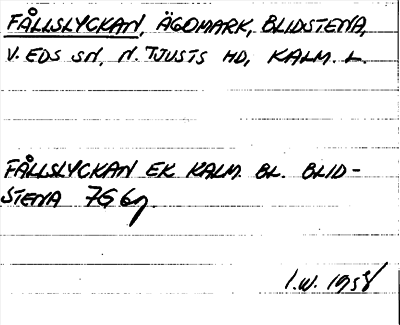 FÅLLSLYCKAN, ÄGOMARK, BLIDSTENA,
V. EDS SN, N. TJUSTS HD, KALM. L.
FÅLLSLYCKAN EK KALM. BL. BLID-
STENA 7G 6g
I.W. 1958